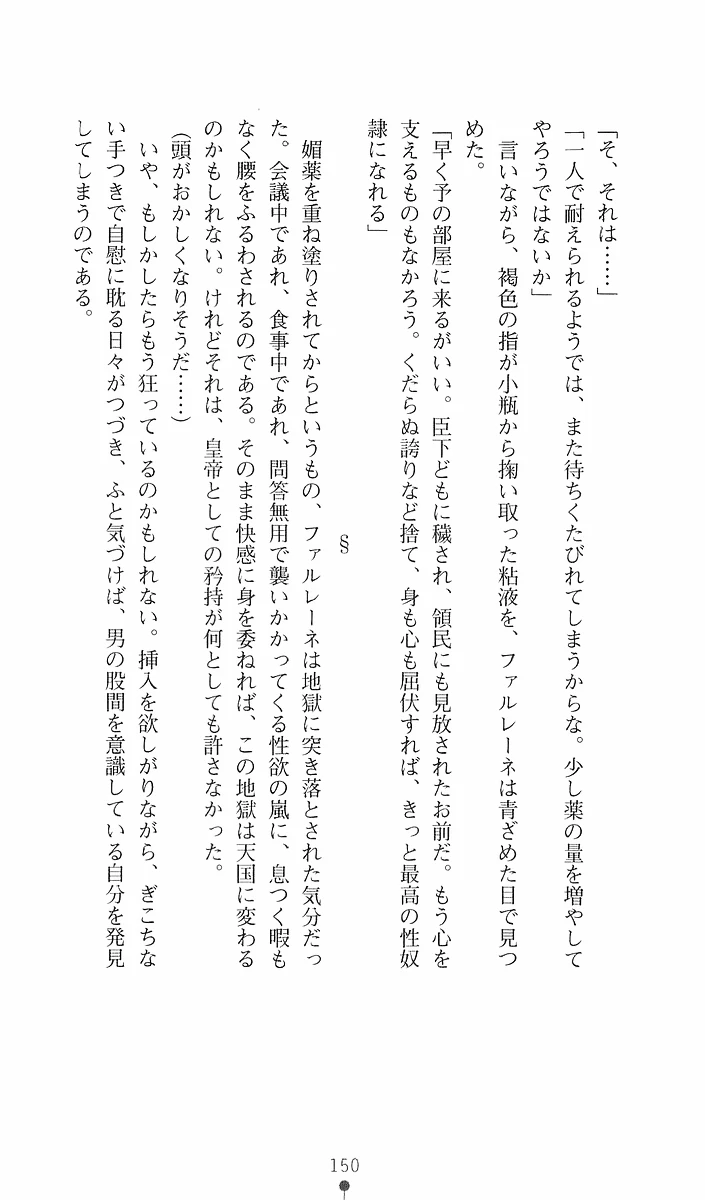 「そ、それは……」
「一人で耐えられるようでは、また待ちくたびれてしまうからな。少し薬の量を増やして
やろうではないか」
　言いながら、褐色の指が小瓶から掬い取った粘液を、ファルレーネは青ざめた目で見つ
めた。
「早く予の部屋に来るがいい。臣下どもに穢され、領民にも見放されたお前だ。もう心を
支えるものもなかろう。くだらぬ誇りなど捨て、身も心も屈伏すれば、きっと最高の性奴
隷になれる」
§
　媚薬を重ね塗りされてからというもの、ファルレーネは地獄に突き落とされた気分だっ
た。会議中であれ、食事中であれ、問答無用で襲いかかってくる性欲の嵐に、息つく暇も
なく腰をふるわされるのである。そのまま快感に身を委ねれば、この地獄は天国に変わる
のかもしれない。けれどそれは、皇帝としての矜持が何としても許さなかった。
（頭がおかしくなりそうだ……）
　いや、もしかしたらもう狂っているのかもしれない。挿入を欲しがりながら、ぎこちな
い手つきで自慰に耽る日々がつづき、ふと気づけば、男の股間を意識している自分を発見
してしまうのである。
150